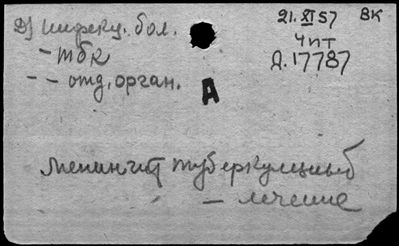 Д) инфекц. бол.
- тбк
- - отд. орган.
А
21.XI 57 ВК
Чит
Д.17787
менингит туберкулезный
- лечение